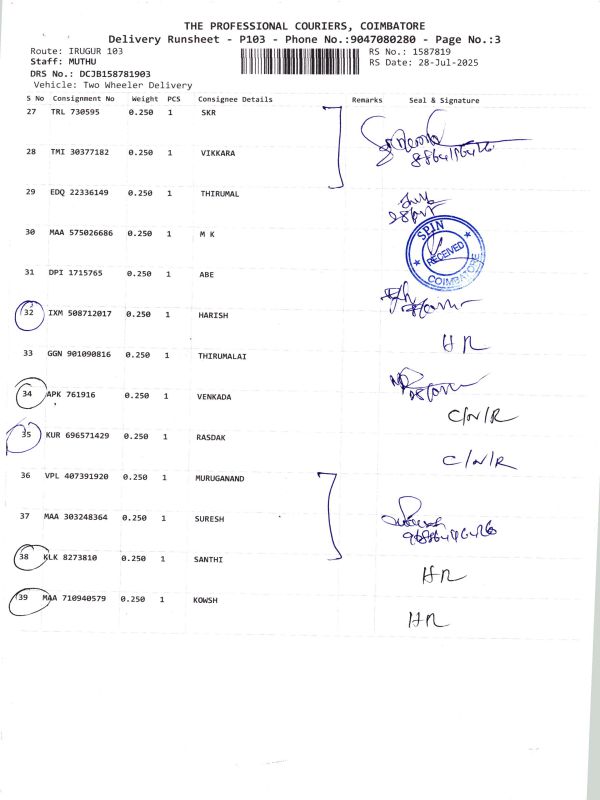 THE PROFESSIONAL COURIERS, COIMBATORE
Delivery Runsheet - P103 - Phone No.:9047080280 - Page No.:3
Route: IRUGUR 103 RS No.: 1587819
Staff: MUTHU RS Date: 28-Jul-2025
DRS No.: DCJB158781903
Vehicle: Two Wheeler Delivery
S No Consignment No Weight PCS Consignee Details Remarks Seal & Signature
27 TRL 730595 0.250 1 SKR
28 TMI 30377182 0.250 1 VIKKARA
29 EDQ 22336149 0.250 1 THIRUMAL
30 MAA 575026686 0.250 1 M K
SPIN
RECEIVED
COIMBATORE
31 DPI 1715765 0.250 1 ABE
32 IXM 508712017 0.250 1 HARISH
H R
33 GGN 901090816 0.250 1 THIRUMALAI
34 APK 761916 0.250 1 VENKADA
C/N/R
35 KUR 696571429 0.250 1 RASDAK
C/N/R
36 VPL 407391920 0.250 1 MURUGANAND
37 MAA 303248364 0.250 1 SURESH
38 KLK 8273810 0.250 1 SANTHI
HR
39 MAA 710940579 0.250 1 KOWSH
HR